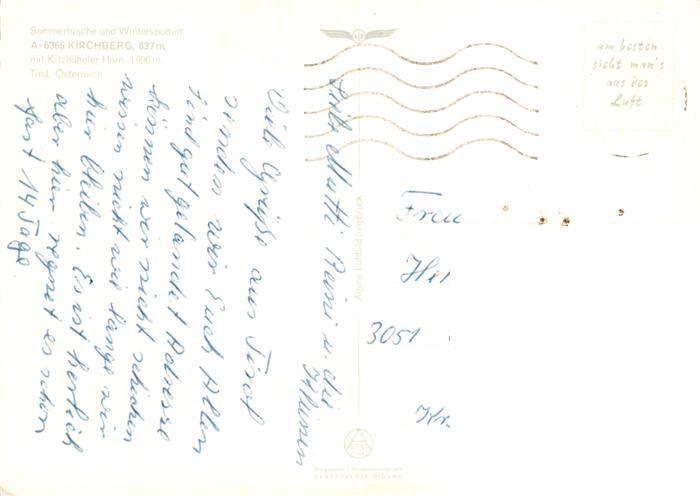 Sommerfrische und Wintersportort
A-6365 KIRCHBERG, 837 m,
mit Kitzbüheler Horn, 1996 m,
Tirol, Österreich
am besten
sieht man's
aus der
Luft
Alpine Luftbild Innsbruck
Mutti u. die
Kleinen
Viele Grüße aus Tirol
senden wir Euch Allen
sind gut gelandet Adresse
können wir nicht schicken
wissen nicht wie lange wir
hier bleiben. Es ist herrlich
aber hier regnet es schon
fast 14 Tage.
Frau
Her
3051
Kr.
LANDESVERTEIDIGUNG